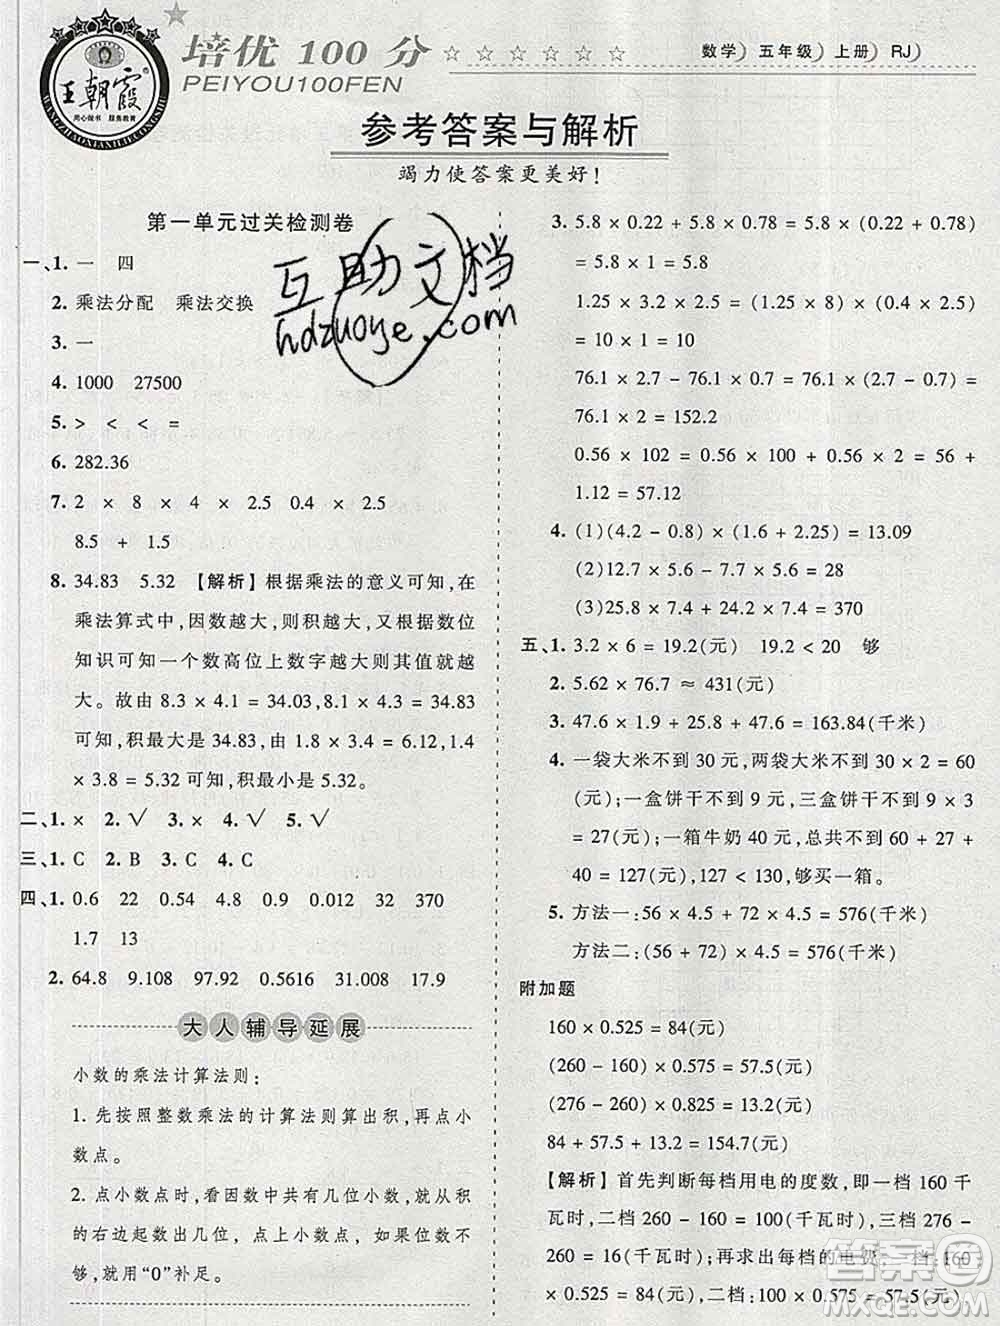 培优 100 分
PEIYOU100FEN
☆ ☆ ☆ ☆ ☆ ☆
数学) 五年级) 上册) RJ)
王朝霞®
用心做书 服务教育
WANGZHAOXIAXILIECONGSHU
参考答案与解析
竭力使答案更美好!
互助文档
hdzuoye.com
第一单元过关检测卷
一、1. 一 四
2. 乘法分配 乘法交换
3. 一
4. 1000 27500
5. > < < =
6. 282.36
7. 2 × 8 × 4 × 2.5 0.4 2.5
8.5 + 1.5
8. 34.83 5.32 【解析】根据乘法的意义可知,在
乘法算式中,因数越大,则积越大,又根据数位
知识可知一个数高位上数字越大则其值就越
大。故由 8.3 × 4.1 = 34.03,8.1 × 4.3 = 34.83
可知,积最大是 34.83,由 1.8 × 3.4 = 6.12,1.4
× 3.8 = 5.32 可知,积最小是 5.32。
二、1. × 2. √ 3. × 4. √ 5. √
三、1. C 2. B 3. C 4. C
四、1. 0.6 22 0.54 4.8 0.9 0.012 32 370
1.7 13
2. 64.8 9.108 97.92 0.5616 31.008 17.9
大人辅导延展
小数的乘法计算法则:
1. 先按照整数乘法的计算法则算出积,再点小
数点。
2. 点小数点时,看因数中共有几位小数,就从积
的右边起数出几位,点上小数点,如果位数不
够,就用“0”补足。
3. 5.8 × 0.22 + 5.8 × 0.78 = 5.8 × (0.22 + 0.78)
= 5.8 × 1 = 5.8
1.25 × 3.2 × 2.5 = (1.25 × 8) × (0.4 × 2.5)
= 10 × 1 = 10
76.1 × 2.7 - 76.1 × 0.7 = 76.1 × (2.7 - 0.7) =
76.1 × 2 = 152.2
0.56 × 102 = 0.56 × 100 + 0.56 × 2 = 56 +
1.12 = 57.12
4. (1)(4.2 - 0.8) × (1.6 + 2.25) = 13.09
(2)12.5 × 0.4 × 5.6 = 28
(3)25.8 × 7.4 + 24.2 × 7.4 = 370
五、1. 3.2 × 6 = 19.2(元) 19.2 < 20 够
2. 5.62 × 76.7 ≈ 431(元)
3. 47.6 × 1.9 + 25.8 + 47.6 = 163.84(千米)
4. 一袋大米不到 30 元,两袋大米不到 30 × 2 = 60
(元);一盒饼干不到 9 元,三盒饼干不到 9 × 3
= 27(元);一箱牛奶 40 元,总共不到 60 + 27 +
40 = 127(元),127 < 130,够买一箱。
5. 方法一:56 × 4.5 + 72 × 4.5 = 576(千米)
方法二:(56 + 72) × 4.5 = 576(千米)
附加题
160 × 0.525 = 84(元)
(260 - 160) × 0.575 = 57.5(元)
(276 - 260) × 0.825 = 13.2(元)
84 + 57.5 + 13.2 = 154.7(元)
【解析】首先判断每档用电的度数,即一档 160 千
瓦时,二档 260 - 160 = 100(千瓦时),三档 276 -
260 = 16(千瓦时);再求出每档的电费,一档:160
× 0.525 = 84(元),二档:100 × 0.575 = 57.5
答案圈
MXQE.COM